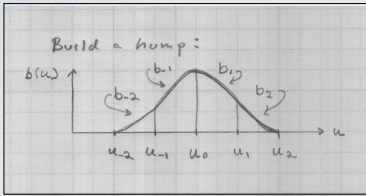 Build a hump:
b(u)
b-2 b-1 b1 b2
u
u-2 u-1 u0 u1 u2